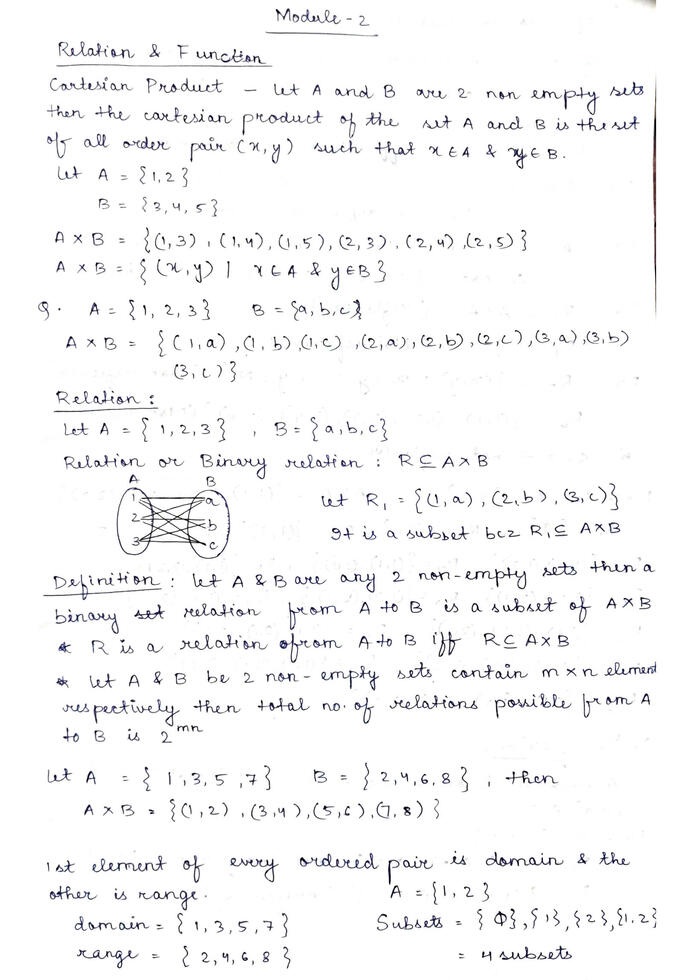 Module - 2
Relation & Function
Cartesian Product - Let A and B are 2 non empty sets
then the cartesian product of the set A and B is the set
of all order pair (x, y) such that x ∈ A & y ∈ B.
Let A = {1, 2}
B = {3, 4, 5}
A × B = {(1, 3), (1, 4), (1, 5), (2, 3), (2, 4), (2, 5)}
A × B = {(x, y) | x ∈ A & y ∈ B}
Q. A = {1, 2, 3} B = {a, b, c}
A × B = {(1, a), (1, b), (1, c), (2, a), (2, b), (2, c), (3, a), (3, b)
(3, c)}
Relation :
Let A = {1, 2, 3}, B = {a, b, c}
Relation or Binary relation : R ⊆ A × B
A B
1 a
2 b
3 c
Let R₁ = {(1, a), (2, b), (3, c)}
It is a subset bcz R₁ ⊆ A × B
Definition : Let A & B are any 2 non-empty sets then a
binary set relation from A to B is a subset of A × B
* R is a relation from A to B iff R ⊆ A × B
* Let A & B be 2 non-empty sets contain m × n element
respectively then total no. of relations possible from A
to B is 2^mn
Let A = {1, 3, 5, 7} B = {2, 4, 6, 8}, then
A × B = {(1, 2), (3, 4), (5, 6), (7, 8)}
1st element of every ordered pair is domain & the
other is range.
domain = {1, 3, 5, 7}
range = {2, 4, 6, 8}
A = {1, 2}
Subsets = {Φ}, {1}, {2}, {1, 2}
= 4 subsets